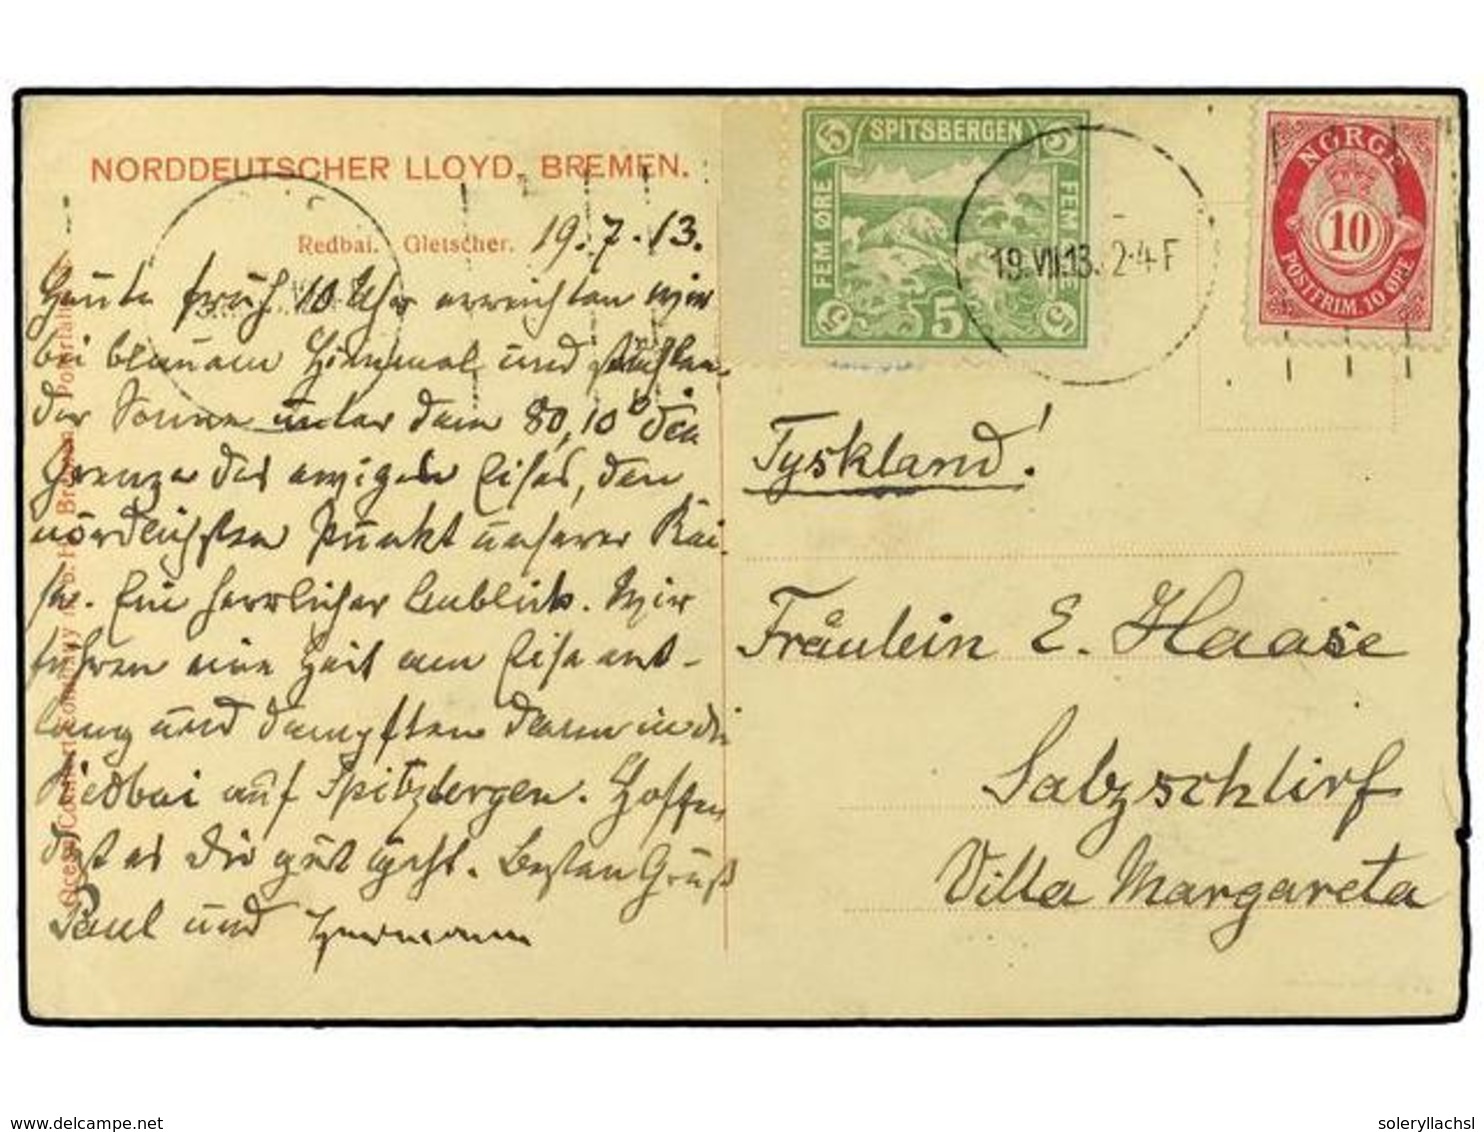 NORDDEUTSCHER LLOYD, BREMEN.
Redbai. Gletscher.
19.7.13.
Heute früh 10 Uhr erreichten wir
bei blauem Himmel und strahlen-
der Sonne unter dem 80,10° die
Grenze des ewigen Eises, den
nördlichsten Punkt unserer Rei-
se. Ein herrlicher Anblick. Wir
fuhren eine Zeit am Eise ent-
lang und dampften dann in die
Redbai auf Spitzbergen. Hoffen
daß es Dir gut geht. Besten Gruß
Paul und Hermann
SPITSBERGEN
5
5
FEM ØRE
FEM ØRE
5
5
5
19.VII.13. 2-4 F
NORGE
10
POSTFRIM. 10 ØRE
Tyskland!
Fräulein E. Haase
Salzschlirf
Villa Margareta
delcampe.net
soleryllachsl